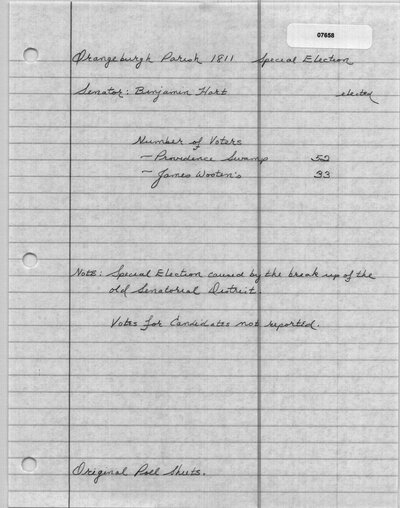 07658
Orangeburgh Parish 1811 Special Election
Senator: Benjamin Hart elected
Number of Voters
— Providence Swamp 52
— James Wooten's 33
Note: Special Election caused by the break up of the
old Senatorial District.
Votes for Candidates not reported.
Original Poll Sheets.